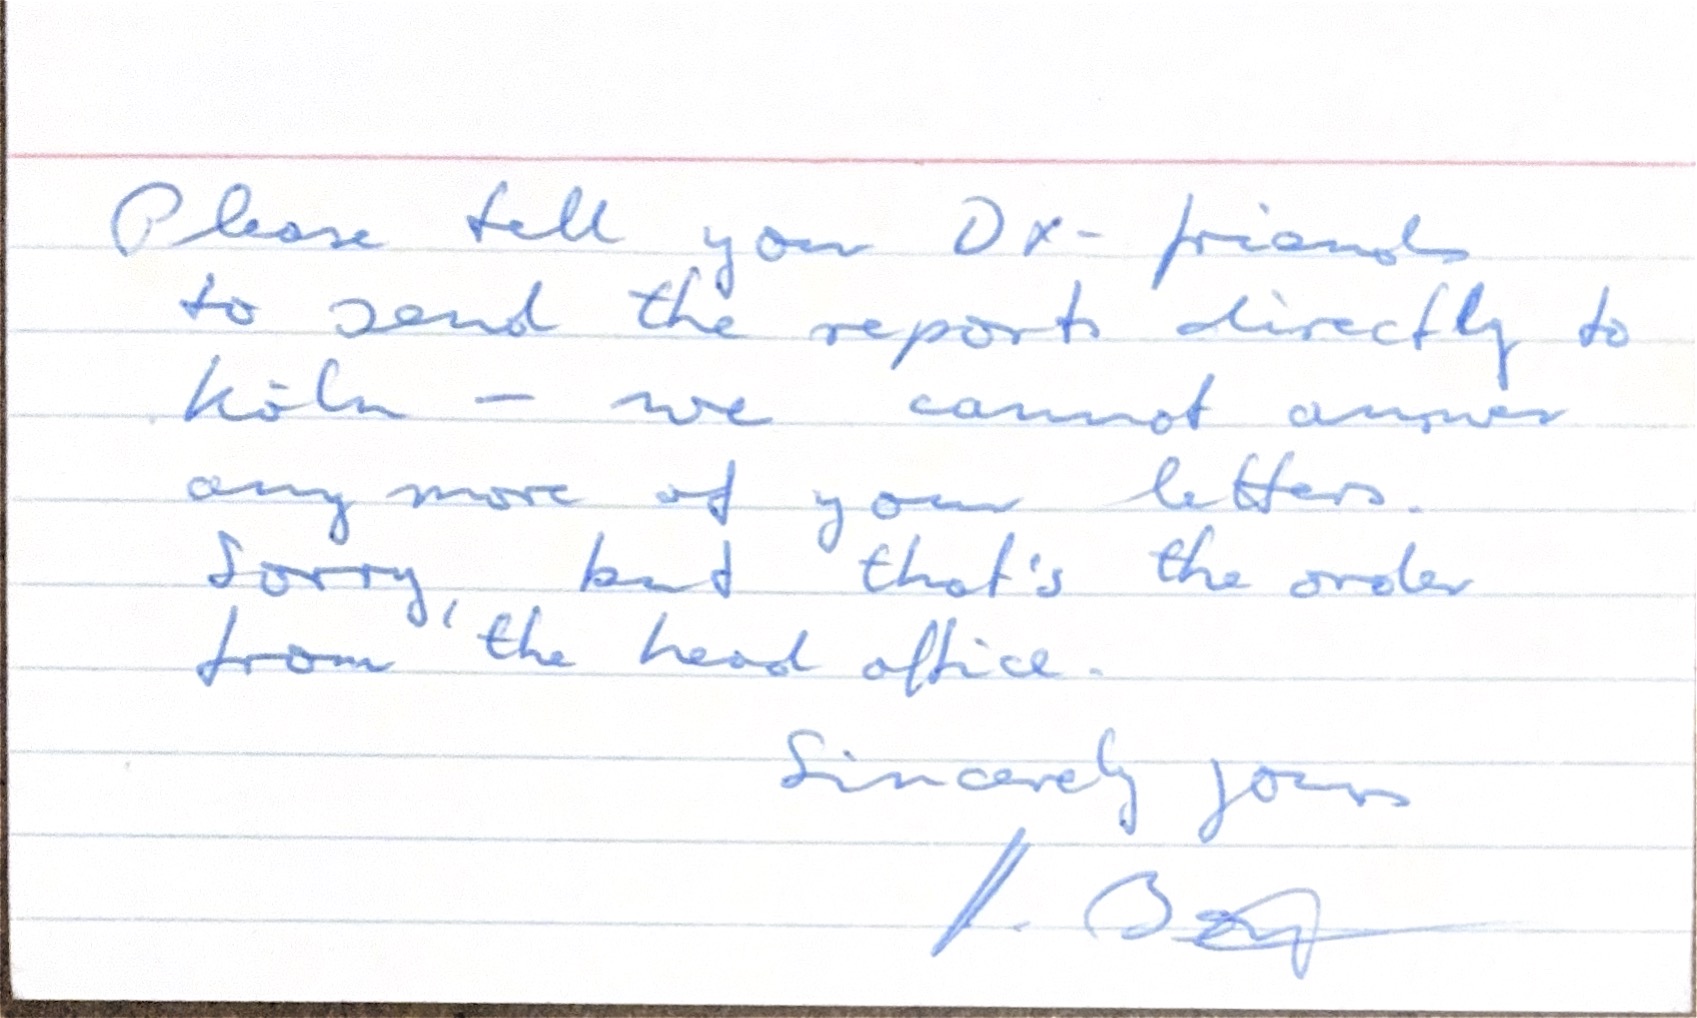 Please tell your Dx-friends
to send the reports directly to
Köln - we cannot answer
any more of your letters.
Sorry, but that's the order
from the head office.
Sincerely yours